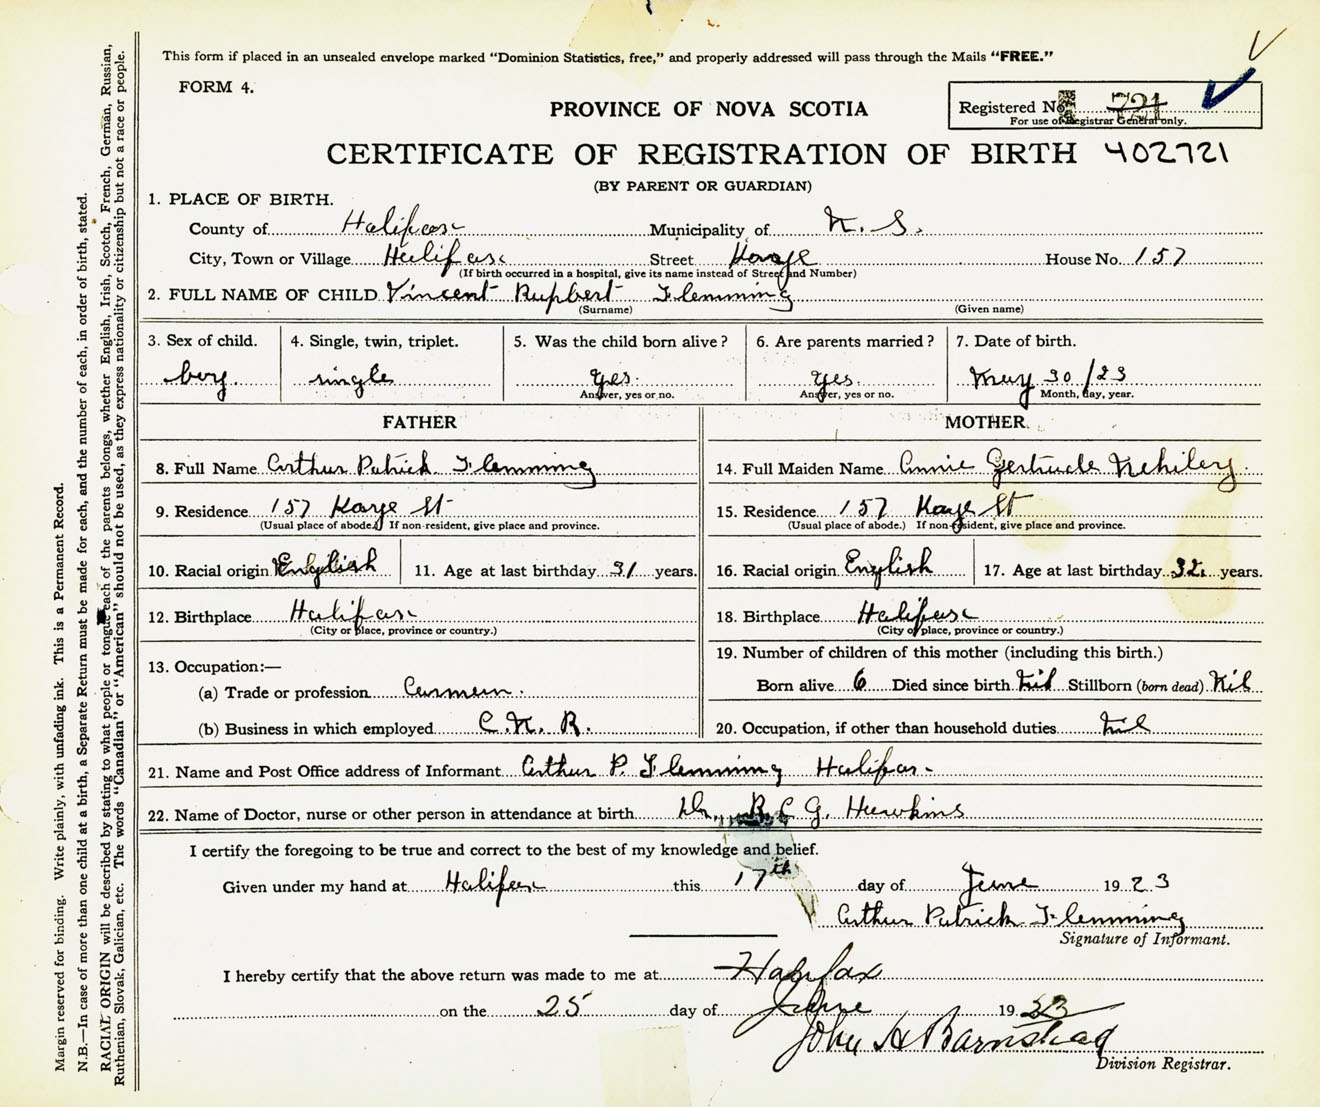 This form if placed in an unsealed envelope marked "Dominion Statistics, free," and properly addressed will pass through the Mails "FREE."
FORM 4.
PROVINCE OF NOVA SCOTIA
Registered No. 721
For use of Registrar General only.
CERTIFICATE OF REGISTRATION OF BIRTH 402721
(BY PARENT OR GUARDIAN)
1. PLACE OF BIRTH.
County of Halifax Municipality of N. S.
City, Town or Village Halifax Street Kaye House No. 157
(If birth occurred in a hospital, give its name instead of Street and Number)
2. FULL NAME OF CHILD Vincent Flemming
(Surname) (Given name)
3. Sex of child. 4. Single, twin, triplet. 5. Was the child born alive? 6. Are parents married? 7. Date of birth.
boy single Yes. Yes. May 30/23
Answer, yes or no. Answer, yes or no. Month, day, year.
FATHER MOTHER
8. Full Name Arthur Patrick Flemming 14. Full Maiden Name Annie Gertrude
9. Residence 157 Kaye St 15. Residence 157 Kaye St
(Usual place of abode.) If non-resident, give place and province. (Usual place of abode.) If non-resident, give place and province.
10. Racial origin English 11. Age at last birthday 31 years. 16. Racial origin English 17. Age at last birthday 32 years.
12. Birthplace Halifax 18. Birthplace Halifax
(City or place, province or country.) (City or place, province or country.)
13. Occupation:— 19. Number of children of this mother (including this birth.)
(a) Trade or profession Carman. Born alive 6 Died since birth Nil Stillborn (born dead) Nil
(b) Business in which employed C. N. R. 20. Occupation, if other than household duties Nil
21. Name and Post Office address of Informant Arthur P. Flemming Halifax
22. Name of Doctor, nurse or other person in attendance at birth Dr. G. Hawkins
I certify the foregoing to be true and correct to the best of my knowledge and belief.
Given under my hand at Halifax this 17th day of June 1923
Arthur Patrick Flemming
Signature of Informant.
I hereby certify that the above return was made to me at Halifax
on the 25 day of June 1923
John A Barnstead
Division Registrar.
Margin reserved for binding. Write plainly, with unfading ink. This is a Permanent Record.
N.B.—In case of more than one child at a birth, a Separate Return must be made for each, and the number of each, in order of birth, stated.
RACIAL ORIGIN will be described by stating to what people or tongue each of the parents belongs, whether English, Irish, Scotch, French, German, Russian,
Ruthenian, Slovak, Galician, etc. The words "Canadian" or "American" should not be used, as they express nationality or citizenship but not a race or people.